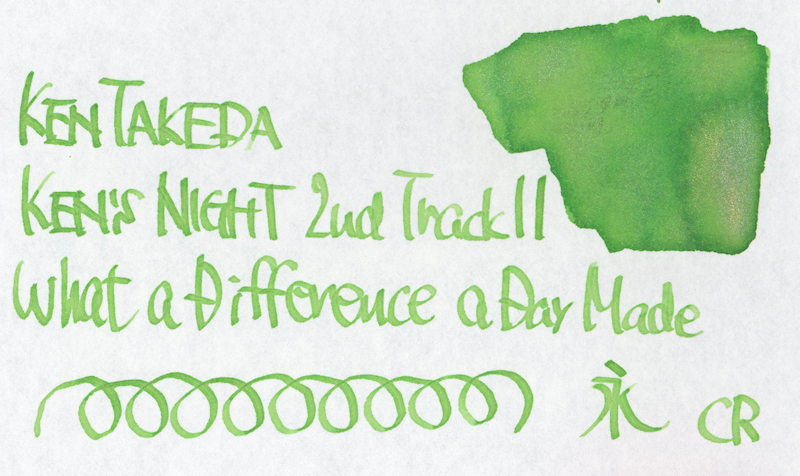 KEN TAKEDA
KEN'S NIGHT 2nd Track 11
What a Difference a Day Made
永 CR